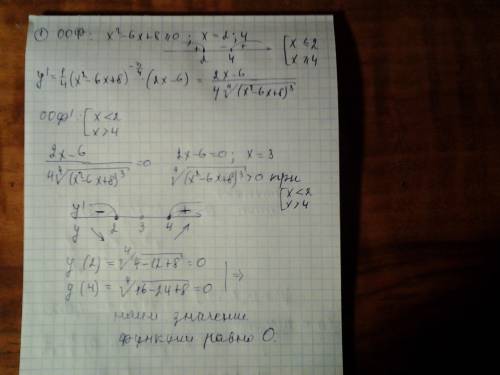 ① ООФ: x²-6x+8≥0; x=2; 4
+ - +
2 4
{x≤2
x≥4
y'=1/4(x²-6x+8)^(-3/4)(2x-6) = (2x-6)/(4⁴√(x²-6x+8)³)
ООФ': {x<2
x>4
(2x-6)/(4⁴√(x²-6x+8)³)=0 2x-6=0; x=3
⁴√(x²-6x+8)³>0 при
{x<2
x>4
y' - +
y 2 3 4
y(2) = ⁴√4-12+8=0
y(4) = ⁴√16-24+8=0 | ⇒
наим значении
функции равно 0.